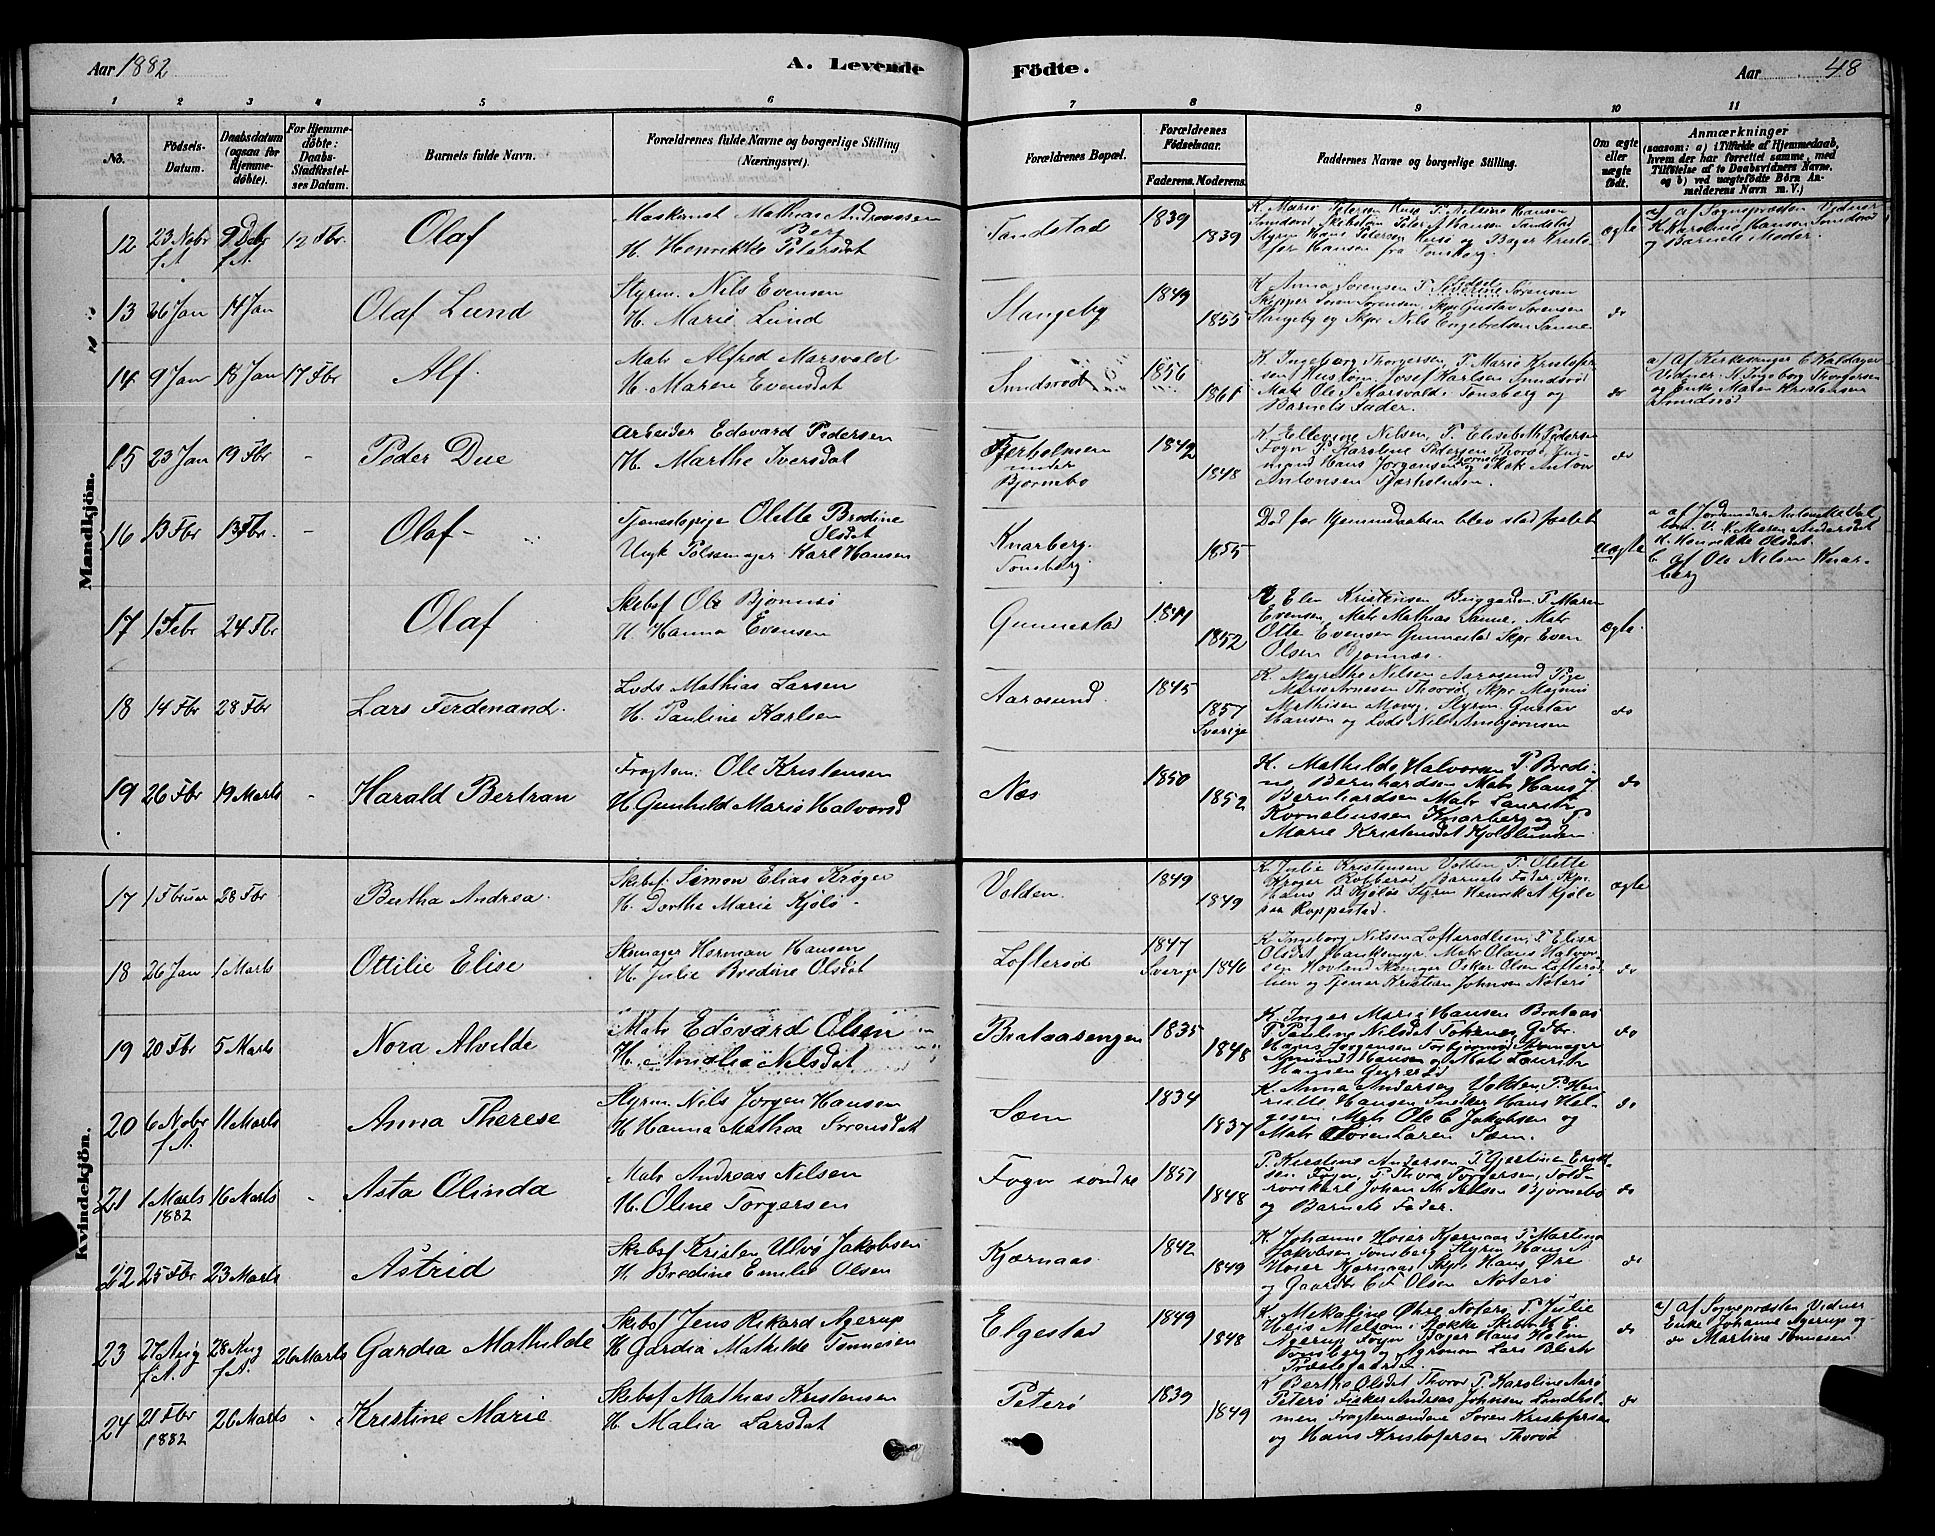 Aar 1882
A. Levende
Födte.
Aar 48
1 2 3 4 5 6 7 8 9 10 11
No.
Födsels-
Datum.
Daabsdatum
(ogsaa for
Hjemme-
döbte).
For Hjemme-
döbte:
Daabs-
Stadfæstel-
ses Datum.
Barnets fulde Navn.
Forældrenes fulde Navne og borgerlige Stilling
(Næringsvei).
Forældrenes Bopæl.
Forældrenes
Födselsaar.
Faderens. Moderens.
Faddernes Navne og borgerlige Stilling.
Om ægte
eller
uægte
födt.
Anmærkninger
(saasom: a) i Tilfælde af Hjemmedaab,
hvem der har forrettet samme, med
Tilföielse af to Daabsvidners Navne.
og b) ved uægtefödte Börn An-
melderens Navn m. V.)
Mandkjön.
12 23 Nobr f.A. 9 Debr f.A. 12 Fbr. Olaf
Maskinist Mathias Andreassen
Berg
H. Henrikke Petersdat
Tandstad 1839 1839
K. Marie Petersen Husø P. Nilsine Hansen
Styrm Hans Petersen Husø og Bager Kristo-
fer Hansen fra Tonsberg.
ægte
a) af Sognepræsten Vidner
K. Karoline Hansen Smidsrød
og Barnets Moder.
13 26 Jan 14 Jan Olaf Lund
Styrm. Nils Evensen
H. Marie Lund
Slangeby 1849 1855
K Anna Sorensen P. Severine Sørensen
Skipper Søren Sorensen, Skpr Gustav Sorensen
Slangeby og Skpr Nils Engebretsen Sanne
do
14 9 Jan 18 Jan 17 Fbr Alf.
Matr Alfred Marsvald
H. Maren Evensdat
Smidsrød 1856 1861
K. Ingeborg Thorgersen, P. Marie Kristofer-
sen Josef Karlsen Smidsrød
Matr Ole Marsvald Tonsberg og
Barnets Fader.
do
a) Af Kirkesanger C Kaldager
Vidner: K. Ingeborg Thorgersen
og Enke Maren Kristensen
Smidsrød
15 23 Jan 19 Fbr - Peder Due
Arbeider Edevard Pedersen
H. Marthe Iversdat
Fjerholmen
under
Bjørnebo
1842 1848
K Ellevine Nilsen, P. Elisabeth Pedersen
Fogn P. Karoline Pedersen Thorød
Hans Jørgensen og Matr Anton
Antonsen Fjærholmen.
do
16 13 Fbr 13 Fbr. - Olaf -
Tjenestepige Olette Bredine
Olsdat
Ungk Karl Hansen
Knarberg.
Tonsberg.
1855
Død før Hjemmedaaben blev stadfæstet
uægte
a af Jordemoder Antonette Val
V. K. Maren Andersdat
H. Henrikke Olsdat.
C af Ole Nilsen Knar-
berg
17 1 Febr 24 Fbr Olaf
Skibsf Ole Bjønnesø
H. Hanna Evensen
Gunnestad 1841 1852
K Elen Kristensen Bryggarden P. Maren
Evensen, Matr Mathias Sanne, Matr
Otto Evensen Gunnestad Skpr Even
Olsen Bjønnes.
ægte.
18 14 Fbr 28 Fbr Lars Ferdenand.
Lods Mathias Larsen
H. Pauline Karlsen
Aarøsund. 1845 1857
Sverige
K. Myrethe Nilsen Aarosund Pige
Marie Arnesen Thorød, Skpr Magnus
Mathisen Moug, Styrm. Gustav
Hansen og Lods Nils Ambjørnsen
do
19 26 Fbr 19 Marts - Harald Bertran
Fragtem: Ole Kristensen
H. Gunhild Marie Halvorsd
Næs 1850 1852
K. Mathilde Halvorsen P. Bredi-
ne Bernhardsen Matr Hans J
Bernhardsen Matr Lauritz
Korneliussen Knarberg og P
Marie Kristensdat Kjølelunden
do
Kvindekjön.
17 1 Februar 28 Fbr Bertha Andrea.
Skibsf. Simon Elias Krøger
H. Dorthe Marie Kjølø -
Volden. 1849 1849
K. Julie Kristensen Volden P. Olette
Krøger Robberød, Barnets Fader, Skpr.
Hans B Kjølø Styrm Henrik A Kjøle
Roppestad.
ægte
18 26 Jan 1 Marts Ottilie Elise
Skomager Herman Hansen
H. Julie Bredine Olsdat
Lofterød 1847
Sverige 1846
K. Ingeborg Nilsen Lofterødlien, P. Elisa
Olsdat Hankemyr. Matr Olaus Halvor-
sen Hovland Skomager Oskar Olsen Lofterød-
lien og Tjener Kristian Johnsen Nøterø
do
19 20 Fbr 5 Marts Nora Alvilde
Matr Edevard Olsen
H. Amalia Nilsdat
Brataasengen 1835 1848
K. Inger Marie Hansen Brataas
P Pauline Nilsdat Gdbr.
Hans Jorgensen Torbjørnrød Skomager
Amund Hansen og Matr Lauritz
Hansen
do
20 6 Nobr f.A. 11 Marts Anna Therese
Styrm. Nils Jorgen Hansen
H Hanna Mathea Sørensdat
Sæm 1834 1837
K. Anna Andersen Volden, P. Hen-
riette Hansen Snekker Hans Hel-
gesen, Matr Ole C. Jakobsen og
Matr Soren Laren Sæm.
do
21 1 Marts 1882 16 Marts - Asta Olinda
Matr Andreas Nilsen
H. Oline Torgersen
Fogn søndre 1857 1848
P. Kerstine Andersen P. Gjertine Erik-
sen Fogn, P. Thora Torgersen, Told-
rorskarl Johan M Nilsen Bjørnebo
og Barnets Fader.
do
22 25 Fbr 23 Marts Astrid
Skibsf Kristen Ulvø Jakobsen
H. Bredine Emilie Olsen
Kjærnaas. 1842 1849
K. Johanne Høier Kjærnaas P. Martina
Jakobsen Tonsberg Styrm Hans A
Høier Kjærnaas Skpr Hans Øre
og Gaardbr C.F. Olsen Nøterø
do
23 27 Aug f.A. 28 Aug f.A. 26 Marts Gardia Mathilde
Skibsf Jens Rikard Agerup
H Gardia Mathilde Tønnesen
Elgestad 1849 1848
K. Mekaline Øhre Nøterø P. Julie
Heis Melsom i Stokke Skibsr K C
Agerup Fogn Bager Hans Holm
Tonsberg og Agronom Lars Blichr
Præstegaarden
do
a) Af Sognepræsten Vidner
Enke Johanne Agerup og
do Martine Tønnesen
24 21 Fbr 1882 26 Marts - Kristine Marie
Skibsf Mathias Kristensen
H Malia Larsdat
Peterø 1839 1849
K Berthe Olsdat Thorød P Karoline Aarø
Peterø Fisker Andreas Johnsen Lundhol-
men Fragtemændene Søren Kristofersen
og Hans Kristofersen Thorød
do